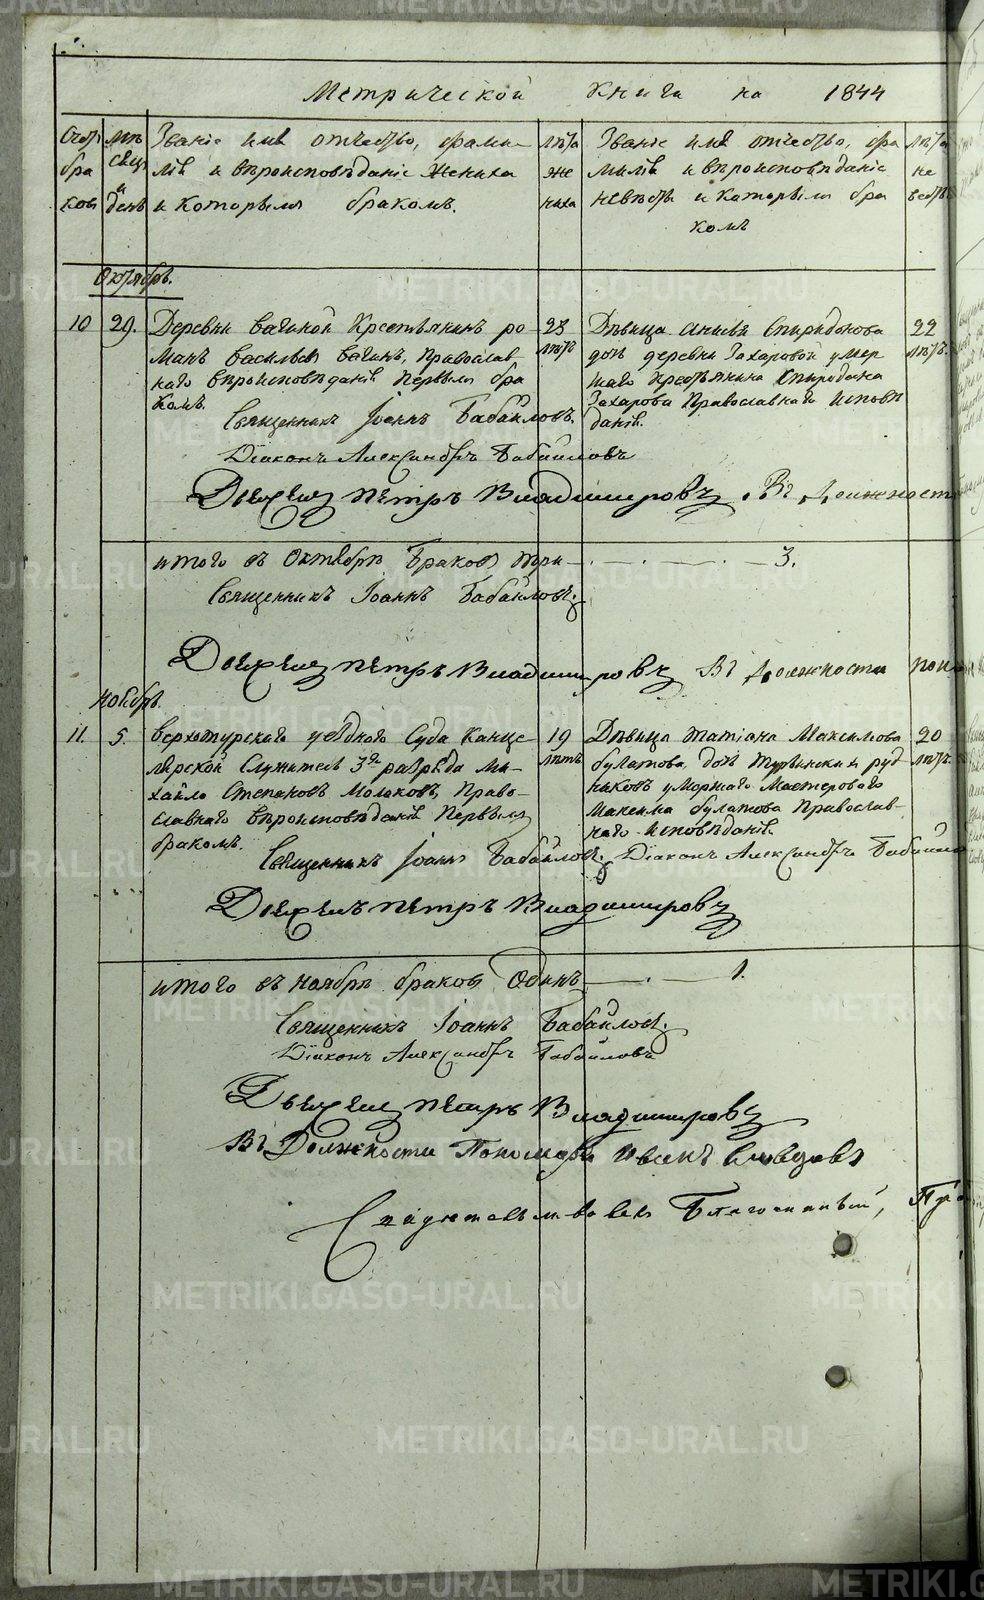 Метрической Книги на 1844
Счетъ бра ковъ
мѣ сяцъ и день
Званіе имя отчество, фами-
лія и вѣроисповѣданіе Жениха
и Которымъ бракомъ.
лѣта же ниха
Званіе имя отчество, фа
милія и вѣроисповѣданіе
невѣсты и Которымъ бра
комъ
лѣта не весты
Октябрь.
10 29. Деревни Вагиной Крестьянинъ Ро
манъ Васильевъ Вагинъ, Православ-
наго вѣроисповѣданія первымъ бра
комъ.
23 лѣтъ
Дѣвица Анисья Спиридонова
дочь деревни Захаровой умер
шаго Крестьянина Спиридона
Захарова Православнаго исповѣ
данія.
22 лѣтъ.
Священникъ Іоаннъ Бабайловъ.
Діаконъ Александръ Бабайловъ
Дьячекъ Петръ Владимировъ. Въ Должност
итого въ Октябрѣ Браковъ три - 3.
Священникъ Іоаннъ Бабайловъ.
Дьячекъ Петръ Владимировъ Въ Должности
Ноябрь.
11. 5. Верхотурскаго уѣзднаго Суда Канце
лярской Служитель 3го разряда Ми-
хайло Степановъ Молоковъ, Право-
славнаго вѣроисповѣданія Первымъ
бракомъ.
19 лѣтъ
Дѣвица Татіана Максимова
Булатова дочь Турьинскихъ руд
никовъ умершаго Мастероваго
Максима Булатова Православ-
наго исповѣданія.
20 лѣтъ.
Священникъ Іоаннъ Бабайловъ. Діаконъ Александръ Бабайло
Дьячекъ Петръ Владимировъ
итого въ Ноябрѣ браковъ Одинъ - 1.
Священникъ Іоаннъ Бабайловъ.
Діаконъ Александръ Бабайловъ
Дьячекъ Петръ Владимировъ
Въ Должности Пономаря Иванъ Словцовъ
Свидѣтельствовалъ Благочинный,
METRIKI.GASO-URAL.RU